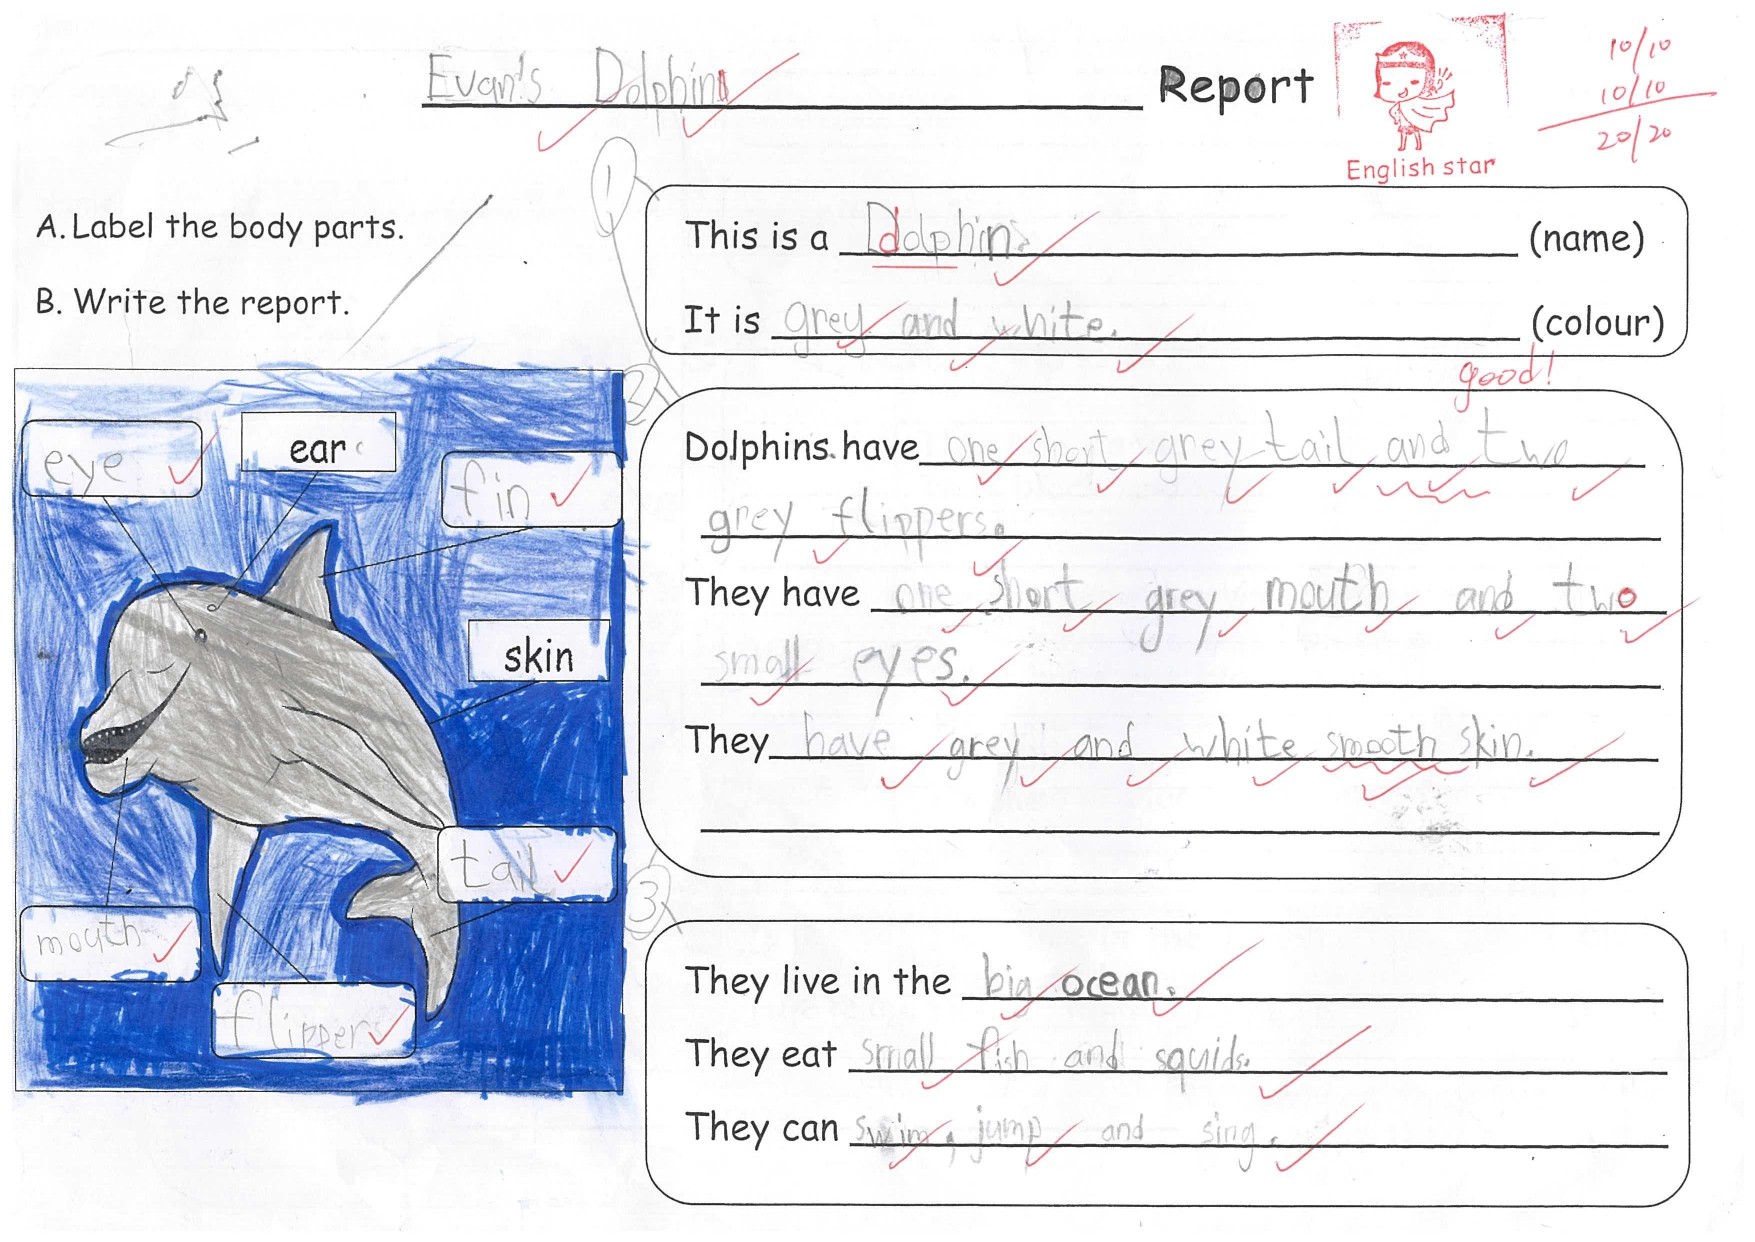 Evan's Dolphin Report
English star
10/10
10/10
20/20
A. Label the body parts.
B. Write the report.
1
This is a Ddolphin. (name)
It is grey and white. (colour)
good!
2
Dolphins have one short grey tail and two
grey flippers.
They have one short grey mouth and two
small eyes.
They have grey and white smooth skin.
3
They live in the big ocean.
They eat small fish and squids.
They can swim, jump and sing.
eye
ear
fin
skin
tail
mouth
flipper